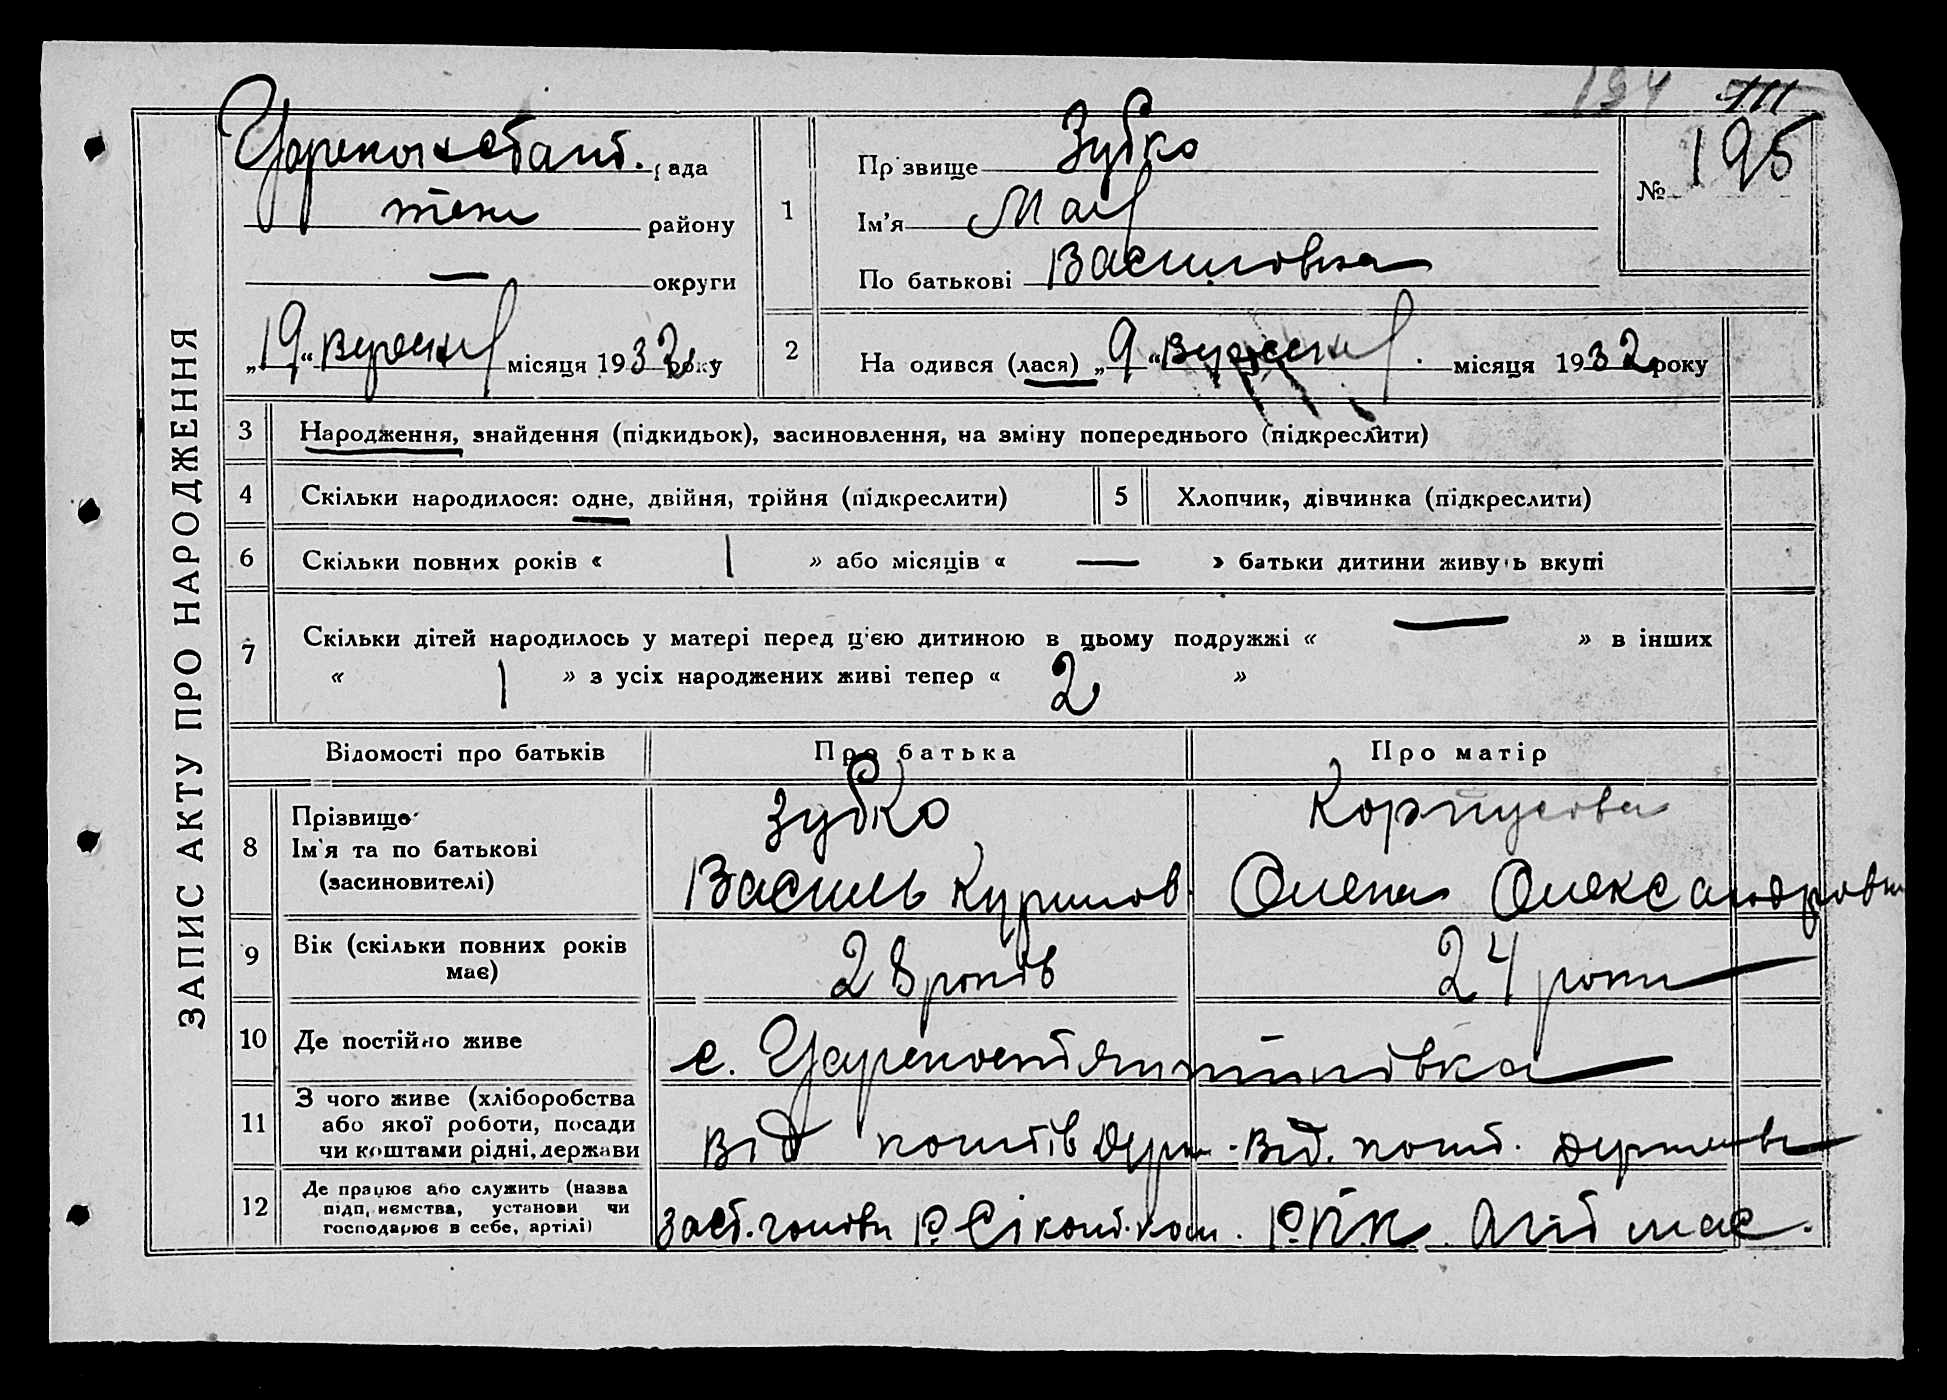 194
111
ЗАПИС АКТУ ПРО НАРОДЖЕННЯ
Царекостант. рада
тож району
— округи
„19“ вересня місяця 1932 року
1
Прізвище Зубко
Ім'я Мая
По батькові Василовна
№ 195
2
На одився (лася) „9“ вересня місяця 1932 року
3 Народження, знайдення (підкидьок), засиновлення, на зміну попереднього (підкреслити)
4 Скільки народилося: одне, двійня, трійня (підкреслити) 5 Хлопчик, дівчинка (підкреслити)
6 Скільки повних років « 1 » або місяців « — » батьки дитини живуть вкупі
7 Скільки дітей народилось у матері перед ц'єю дитиною в цьому подружжі « — » в інших
« 1 » з усіх народжених живі тепер « 2 »
Відомості про батьків Про батька Про матір
8 Прізвище Ім'я та по батькові (засиновителі)
Зубко
Василь Курилов.
Корпусова
Олена Олександровна
9 Вік (скільки повних років має) 28 років 24 роки
10 Де постійно живе с. Царекостянтинівка
11 З чого живе (хліборобства або якої роботи, посади чи коштами рідні, держави від коштів держ. від. кошт. держави
12 Де працює або служить (назва підп, иємства, установи чи господарює в себе, артілі) заст. голови Р. Сіконт. ком. Р.П.К. Агіт мас.